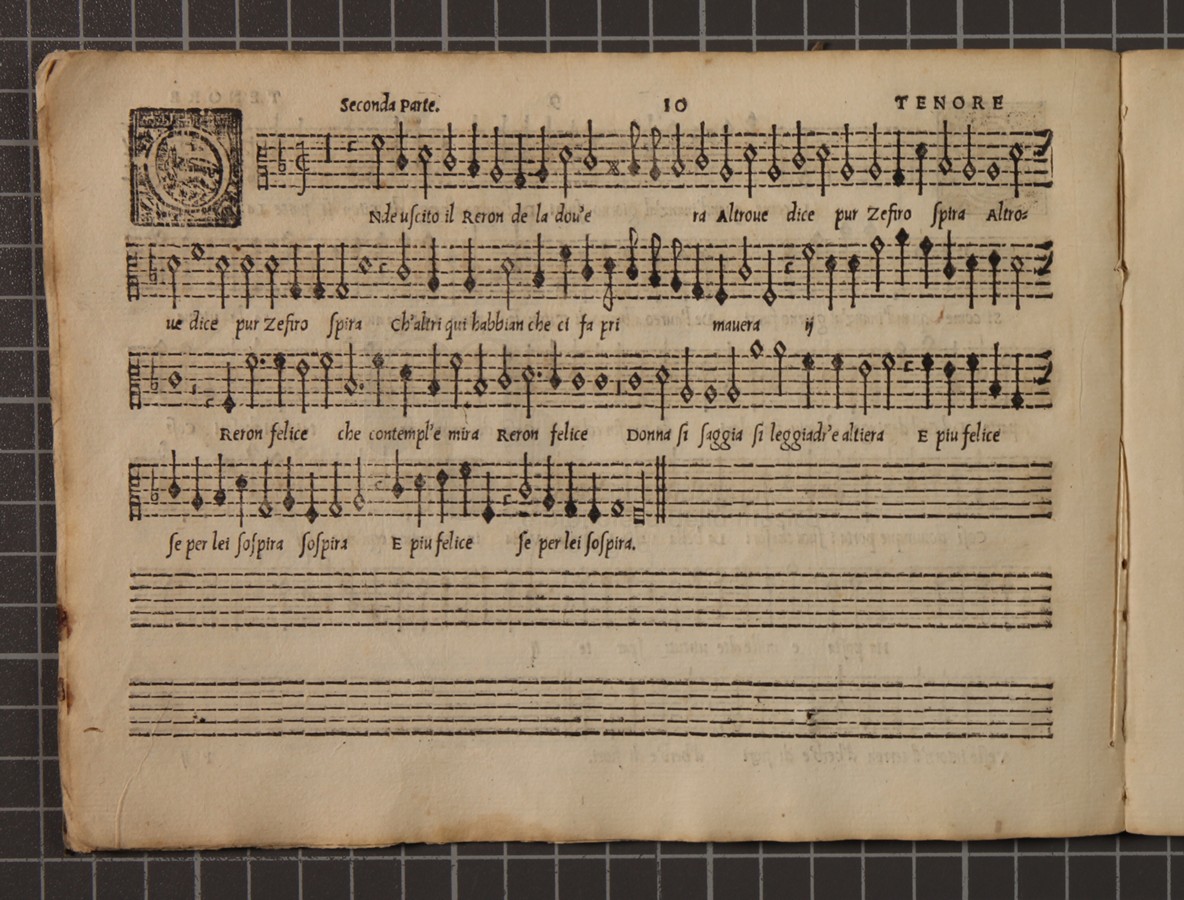 Seconda Parte. 10 TENORE
ONde uſcito il Reron de la dou'e ra Altroue dice pur Zefiro ſpira Altro=
ue dice pur Zefiro ſpira Ch'altri qui habbian che ci fa pri mauera ij
Reron felice che contempl'e mira Reron felice Donna ſi ſaggia ſi leggiadr'e altiera E piu felice
ſe per lei ſoſpira ſoſpira E piu felice ſe per lei ſoſpira.